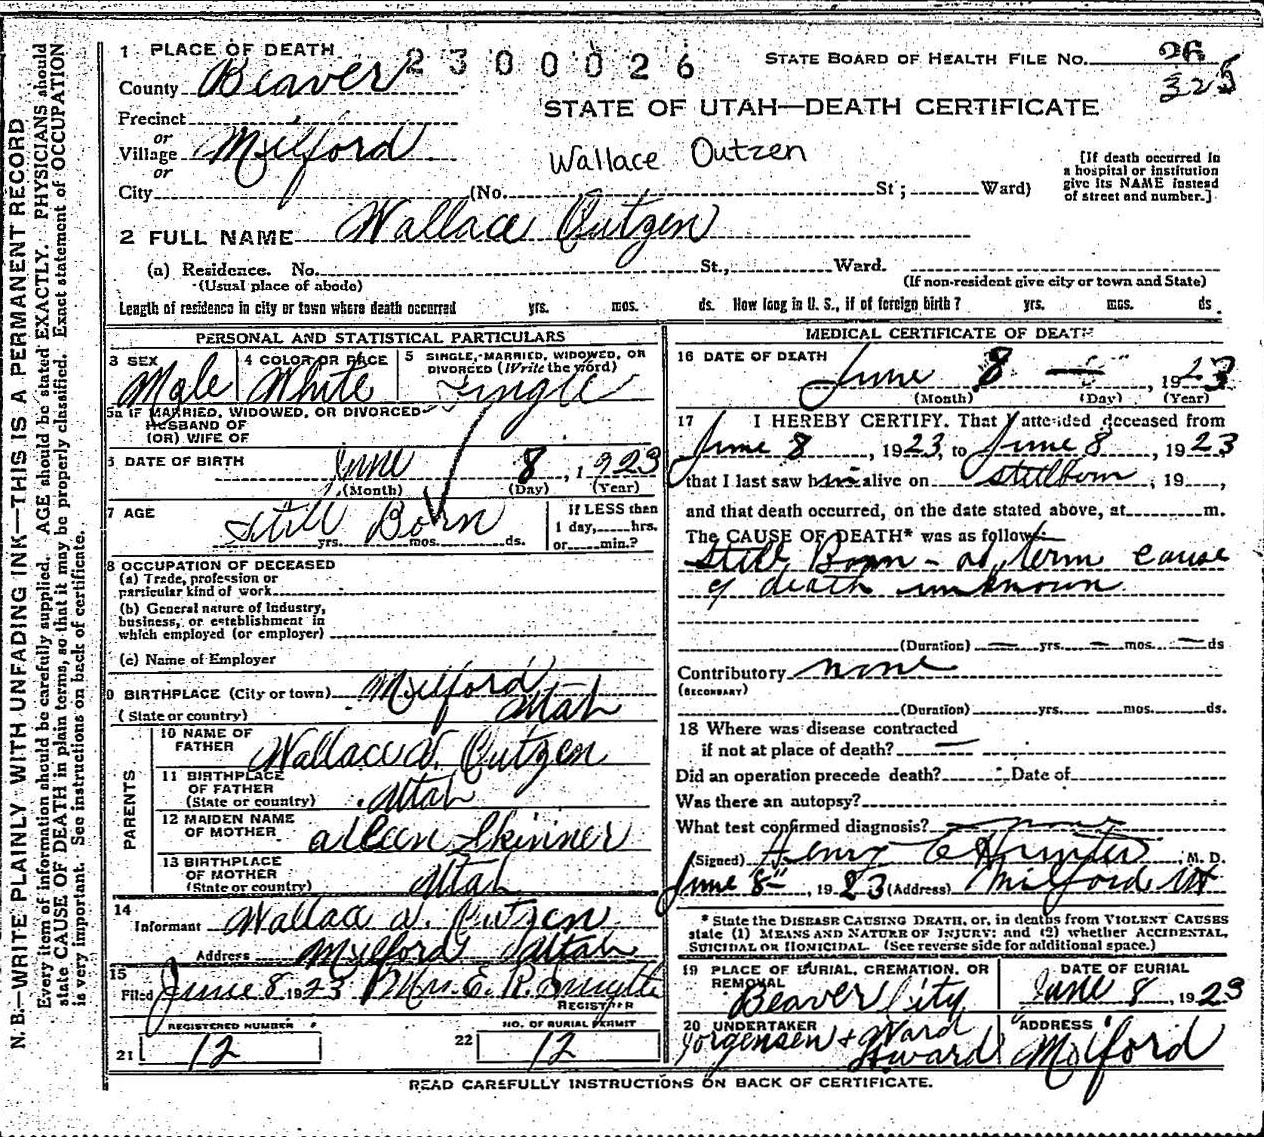 1 PLACE OF DEATH 2300026 STATE BOARD OF HEALTH FILE No. 26
County Beaver 325
STATE OF UTAH—DEATH CERTIFICATE
Precinct
or
Village Milford Wallace Outzen
or
City (No. St; Ward)
[If death occurred in
a hospital or institution
give its NAME instead
of street and number.]
2 FULL NAME Wallace Outzen
(a) Residence. No. St., Ward.
(Usual place of abode) (If non-resident give city or town and State)
Length of residence in city or town where death occurred yrs. mos. ds. How long in U. S., if of foreign birth? yrs. mos. ds.
PERSONAL AND STATISTICAL PARTICULARS
3 SEX 4 COLOR OR RACE 5 SINGLE, MARRIED, WIDOWED, OR
DIVORCED (Write the word)
Male White Single
5a IF MARRIED, WIDOWED, OR DIVORCED
HUSBAND OF
(OR) WIFE OF
6 DATE OF BIRTH June 8, 1923
(Month) (Day) (Year)
7 AGE Still Born
yrs. mos. ds.
If LESS than
1 day, hrs.
or min.?
8 OCCUPATION OF DECEASED
(a) Trade, profession or
particular kind of work
(b) General nature of Industry,
business, or establishment in
which employed (or employer)
(c) Name of Employer
9 BIRTHPLACE (City or town) Milford
(State or country) Utah
PARENTS
10 NAME OF
FATHER Wallace V. Outzen
11 BIRTHPLACE
OF FATHER
(State or country) Utah
12 MAIDEN NAME
OF MOTHER Arleen Skinner
13 BIRTHPLACE
OF MOTHER
(State or country) Utah
14
Informant Wallace V. Outzen
Address Milford Utah
15
Filed June 8 1923 Mrs. E. R. Smyth
REGISTRAR
REGISTERED NUMBER NO. OF BURIAL PERMIT
21 12 22 12
MEDICAL CERTIFICATE OF DEATH
16 DATE OF DEATH
June 8, 1923
(Month) (Day) (Year)
17 I HEREBY CERTIFY. That I attended deceased from
June 8, 1923, to June 8, 1923
that I last saw him alive on stillborn, 19 ,
and that death occurred, on the date stated above, at m.
The CAUSE OF DEATH* was as follows:
Still Born - at term cause
of death unknown
(Duration) yrs. mos. ds
Contributory none
(SECONDARY)
(Duration) yrs. mos. ds.
18 Where was disease contracted
if not at place of death?
Did an operation precede death? Date of
Was there an autopsy?
What test confirmed diagnosis? none
(Signed) Henry E Hunter, M. D.
June 8", 1923 (Address) Milford Ut
* State the DISEASE CAUSING DEATH, or, in deaths from VIOLENT CAUSES
state (1) MEANS AND NATURE OF INJURY: and (2) whether ACCIDENTAL,
SUICIDAL OR HOMICIDAL. (See reverse side for additional space.)
19 PLACE OF BURIAL, CREMATION, OR
REMOVAL
Beaver City
DATE OF BURIAL
June 8, 1923
20 UNDERTAKER
Jorgensen & Ward
ADDRESS
Milford
READ CAREFULLY INSTRUCTIONS ON BACK OF CERTIFICATE.
N. B.—WRITE PLAINLY WITH UNFADING INK—THIS IS A PERMANENT RECORD
Every item of information should be carefully supplied. AGE should be stated EXACTLY. PHYSICIANS should
state CAUSE OF DEATH in plain terms, so that it may be properly classified. Exact statement of OCCUPATION
is very important. See instructions on back of certificate.